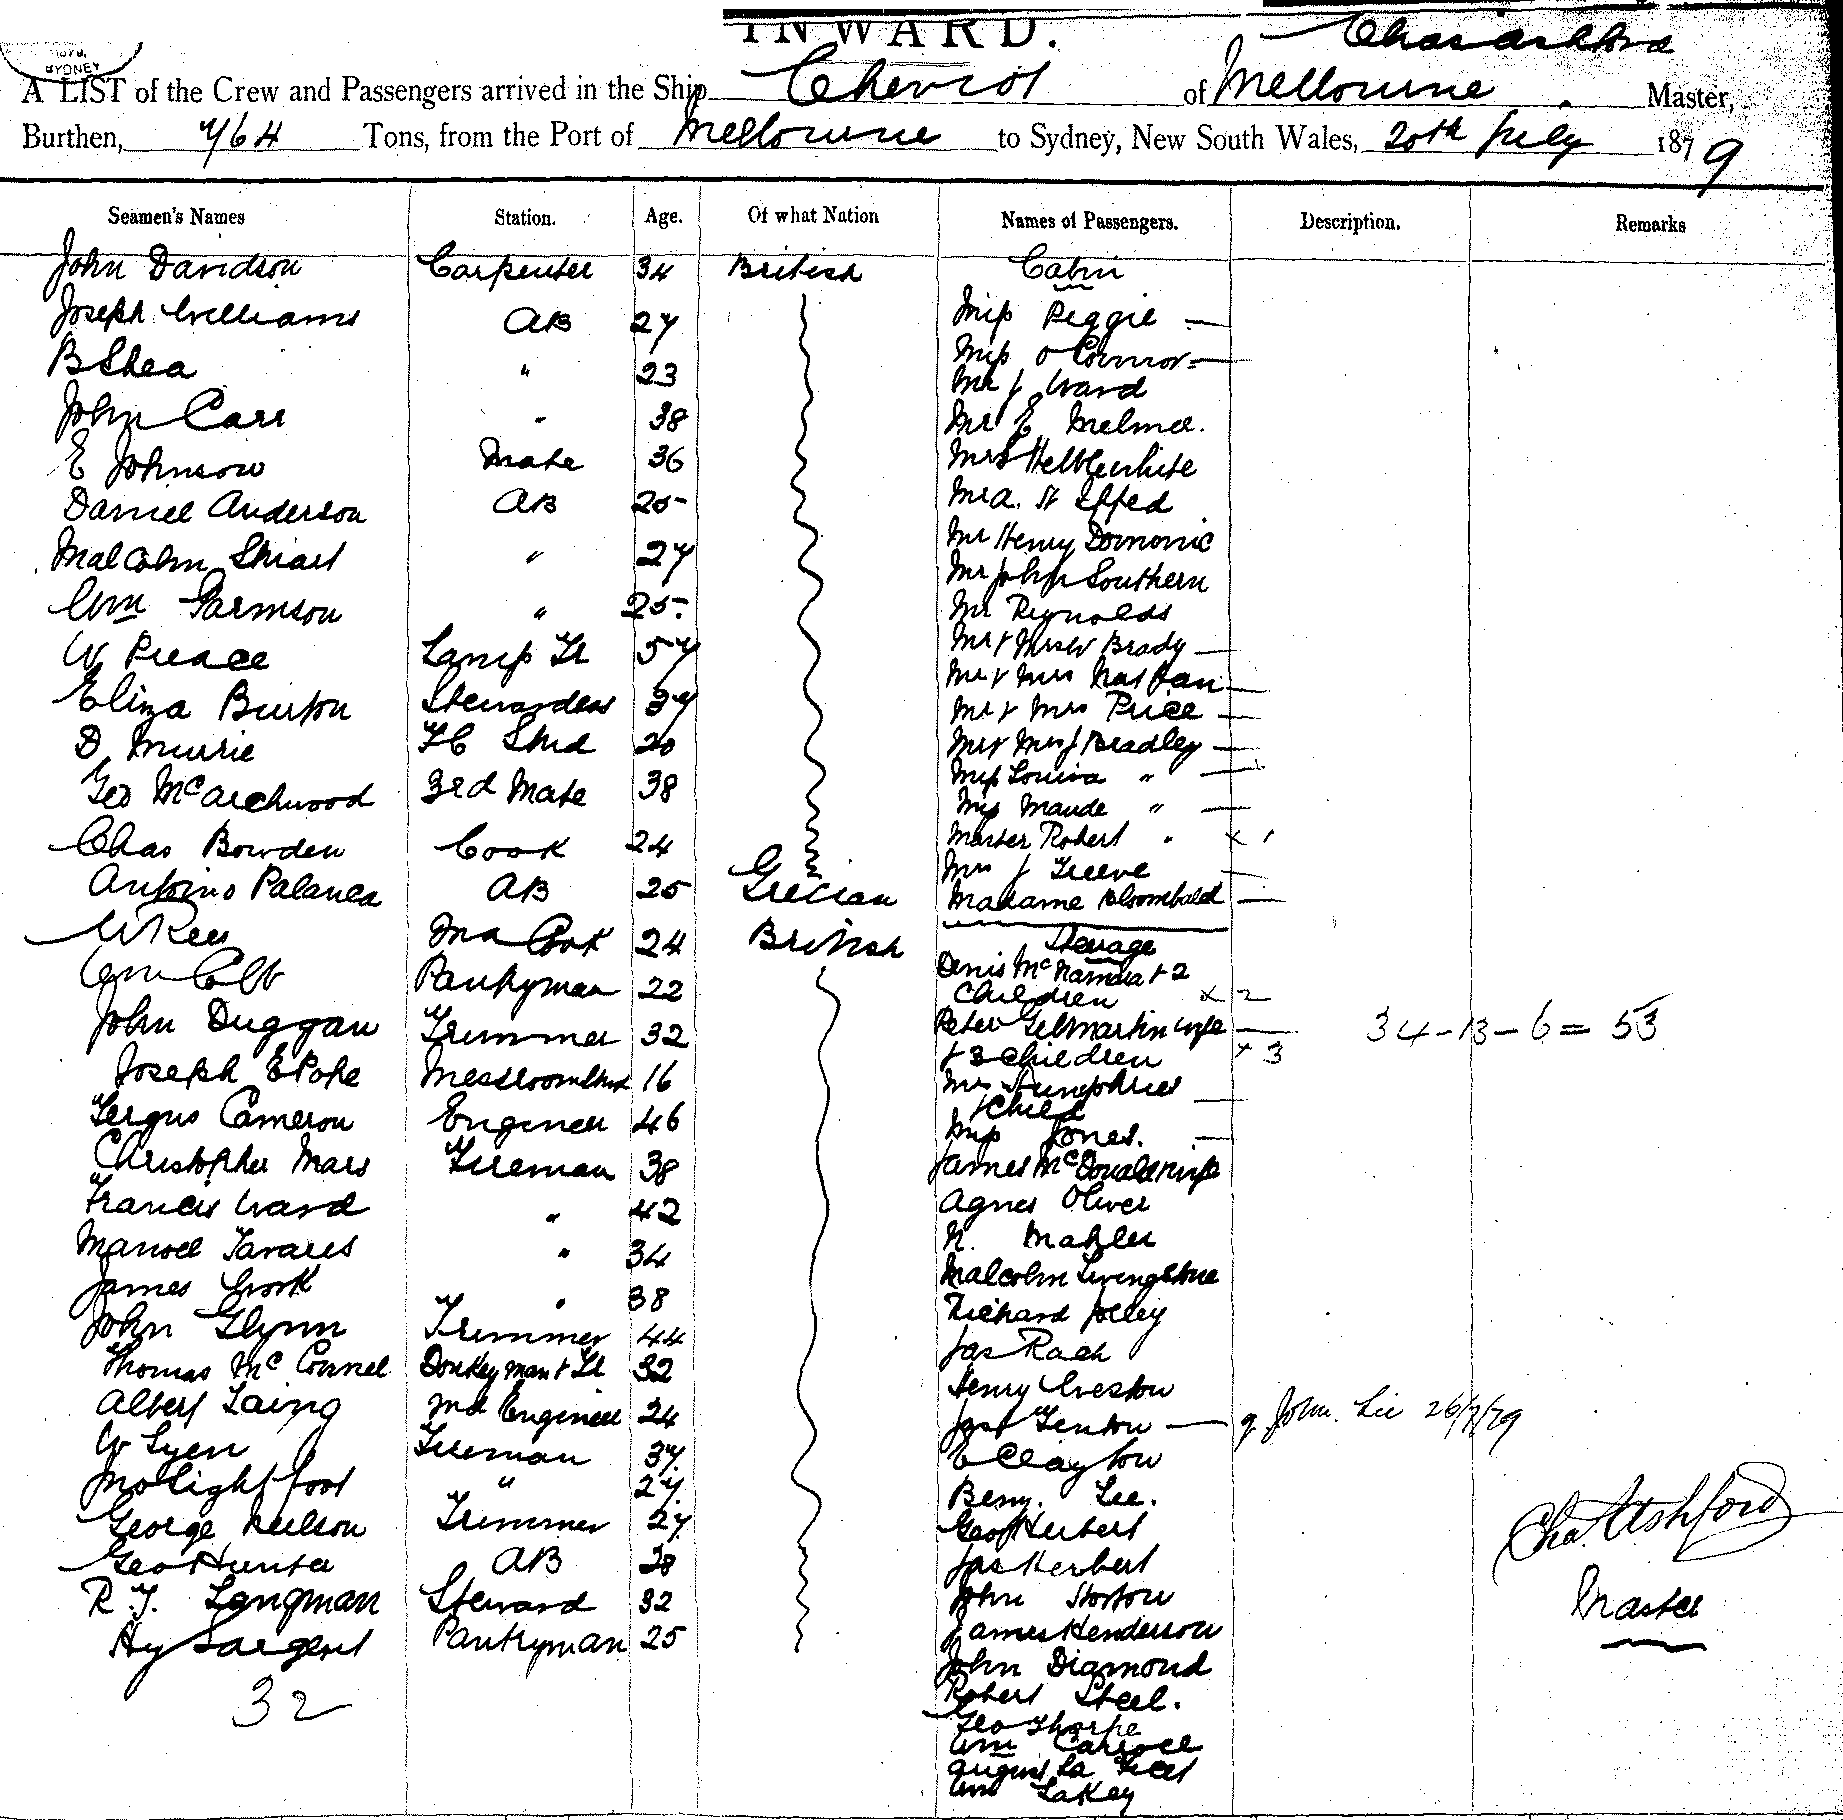 SYDNEY
INWARD.
Chas Ashford
A LIST of the Crew and Passengers arrived in the Ship Cheviot of Melbourne Master,
Burthen, 764 Tons, from the Port of Melbourne to Sydney, New South Wales, 20th July 1879
Seamen's Names Station. Age. Of what Nation Names of Passengers. Description. Remarks
John Davidson Carpenter 34 British Cabin
Joseph Williams AB 27 Miss Peggie —
B Shea " 23 Miss O Connor —
Mr J Ward
John Carr " 38 Mr E
E Johnson Mate 36 Mrs
Daniel Anderson AB 25 Mr A.
Mr Henry
Malcolm " 27
Mr John Southern
Wm " 25 Mr Reynolds
W Pearce Lamp Tr 57 Mr & Mrs W Brady —
Mr & Mrs Nathan —
Eliza Burton Stewardess 37 Mr & Mrs Price —
D Murrie FC Stwd 20 Mr & Mrs J Bradley —
Miss Louisa " —
Geo 3rd Mate 38 Miss Maude " —
Master Robert " x 1
Chas Bowden Cook 24 Mrs J Greeve —
Antoino Palanca AB 25 Grecian Madame —
W Rees 2nd Cook 24 British Steerage
Denis McNamara & 2
Wm Colb Pantryman 22 Children x 2
John Duggan Trimmer 32 Peter Gilmartin wife —
34-13-6 = 53
& 3 children x 3
Joseph E Pope Messroom Stwd 16 Mrs Humphries
& Child —
Fergus Cameron Engineer 46 Miss Jones. —
Christopher Mars Fireman 38 James McDonald wife
Francis Ward " 42 Agnes Oliver
Manoel Tavares " 34 N. Mahler
James Crook " 38 Malcolm Livingstone
John Glynn Trimmer 44 Richard Jolley
Thomas McConnel Donkeyman & Gr 32 Jas
Albert Laing 2nd Engineer 24 Henry Weston
Jas Fenton — John. Lee 26/7/79
W Lyen Fireman 37 E Clayton
Jno Lightfoot " 27 Benj. Lee.
George Neilson Trimmer 27 Geo Herbert
Geo Hunter AB 28 Jas Herbert
Chas. Ashford
R. J. Langman Steward 32 John Horton
Master
Hy Sargent Pantryman 25 James Henderson
32
John Diamond
Robert Steel.
Geo Thorpe
Wm Carroll
August La
Wm Lakey